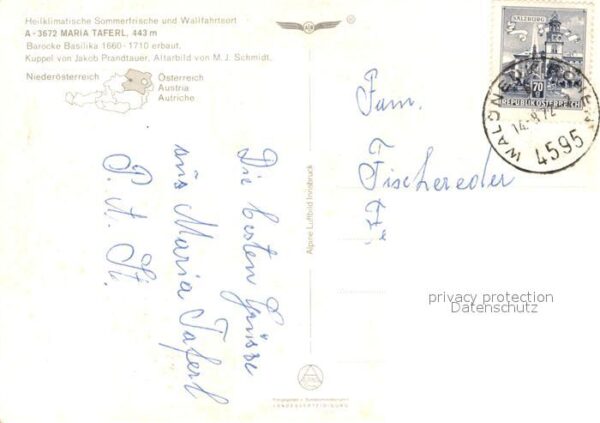 Heilklimatische Sommerfrische und Wallfahrtsort
A - 3672 MARIA TAFERL, 443 m
Barocke Basilika 1660 - 1710 erbaut.
Kuppel von Jakob Prandtauer, Altarbild von M. J. Schmidt.
Niederösterreich
Österreich
Austria
Autriche
Die besten Grüsse
aus Maria Taferl
P. A. St.
Alpine Luftbild Innsbruck
LANDESVERTEIDIGUNG
SALZBURG
70
REPUBLIK ÖSTERREICH
14.-8.72
4595
Fam.
Fischereder
privacy protection
Datenschutz